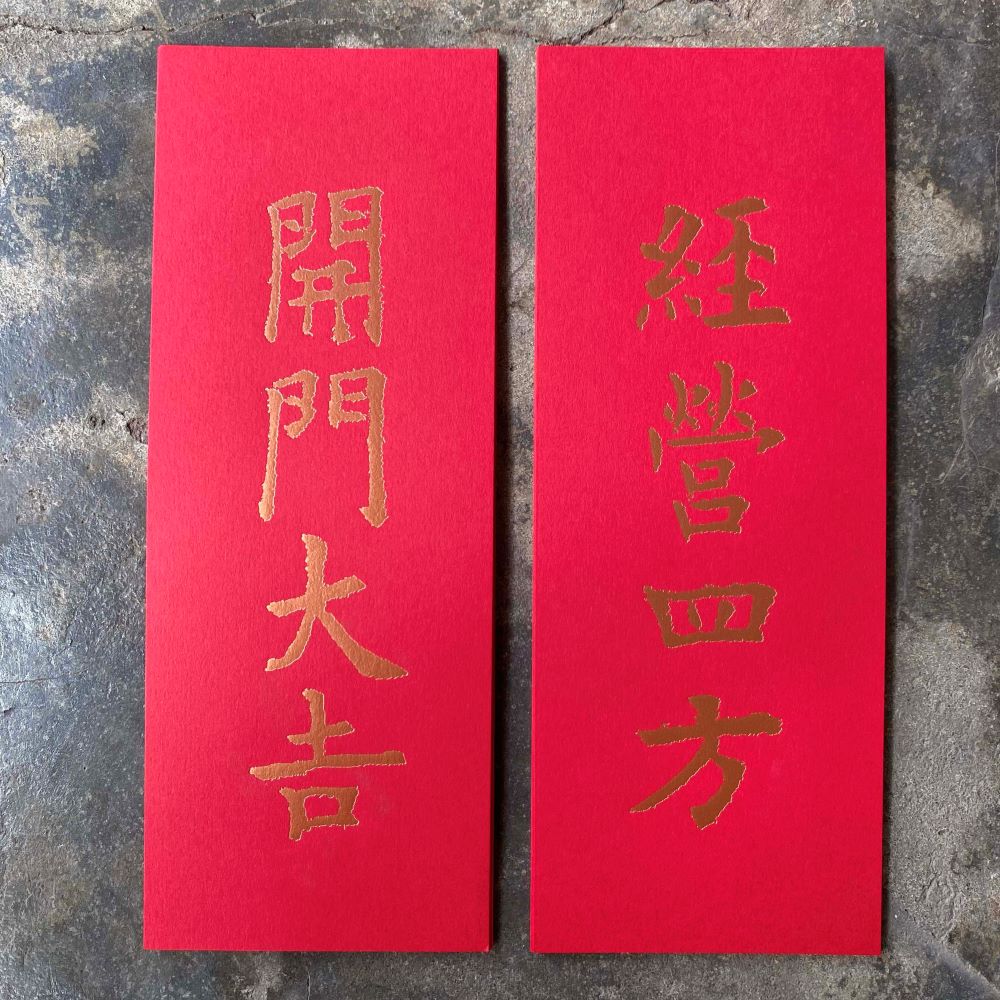 經營四方
開門大吉